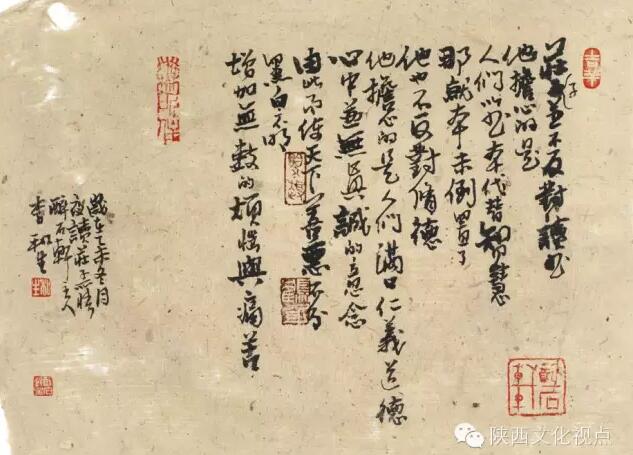 莊子並不反對讀書
他擔心的是
人們以書本代替智慧
那就本末倒置了
他也不反對脩德
他擔心的是人們滿口仁義道德
心中並無真誠的意念
由此而使天下善惡不分
黑白不明
增加無數的煩惱與痛苦
歲在乙未冬月
夜讀莊子心悟
醉石軒主人
李 生
陕西文化视点